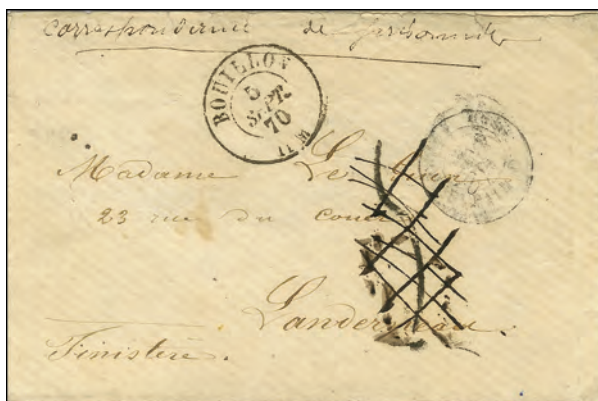 Correspondance de prisonnier
BOUILLON
5
SEPT.
70
11 M
Madame Le
23 rue du
Landerneau.
Finistère.